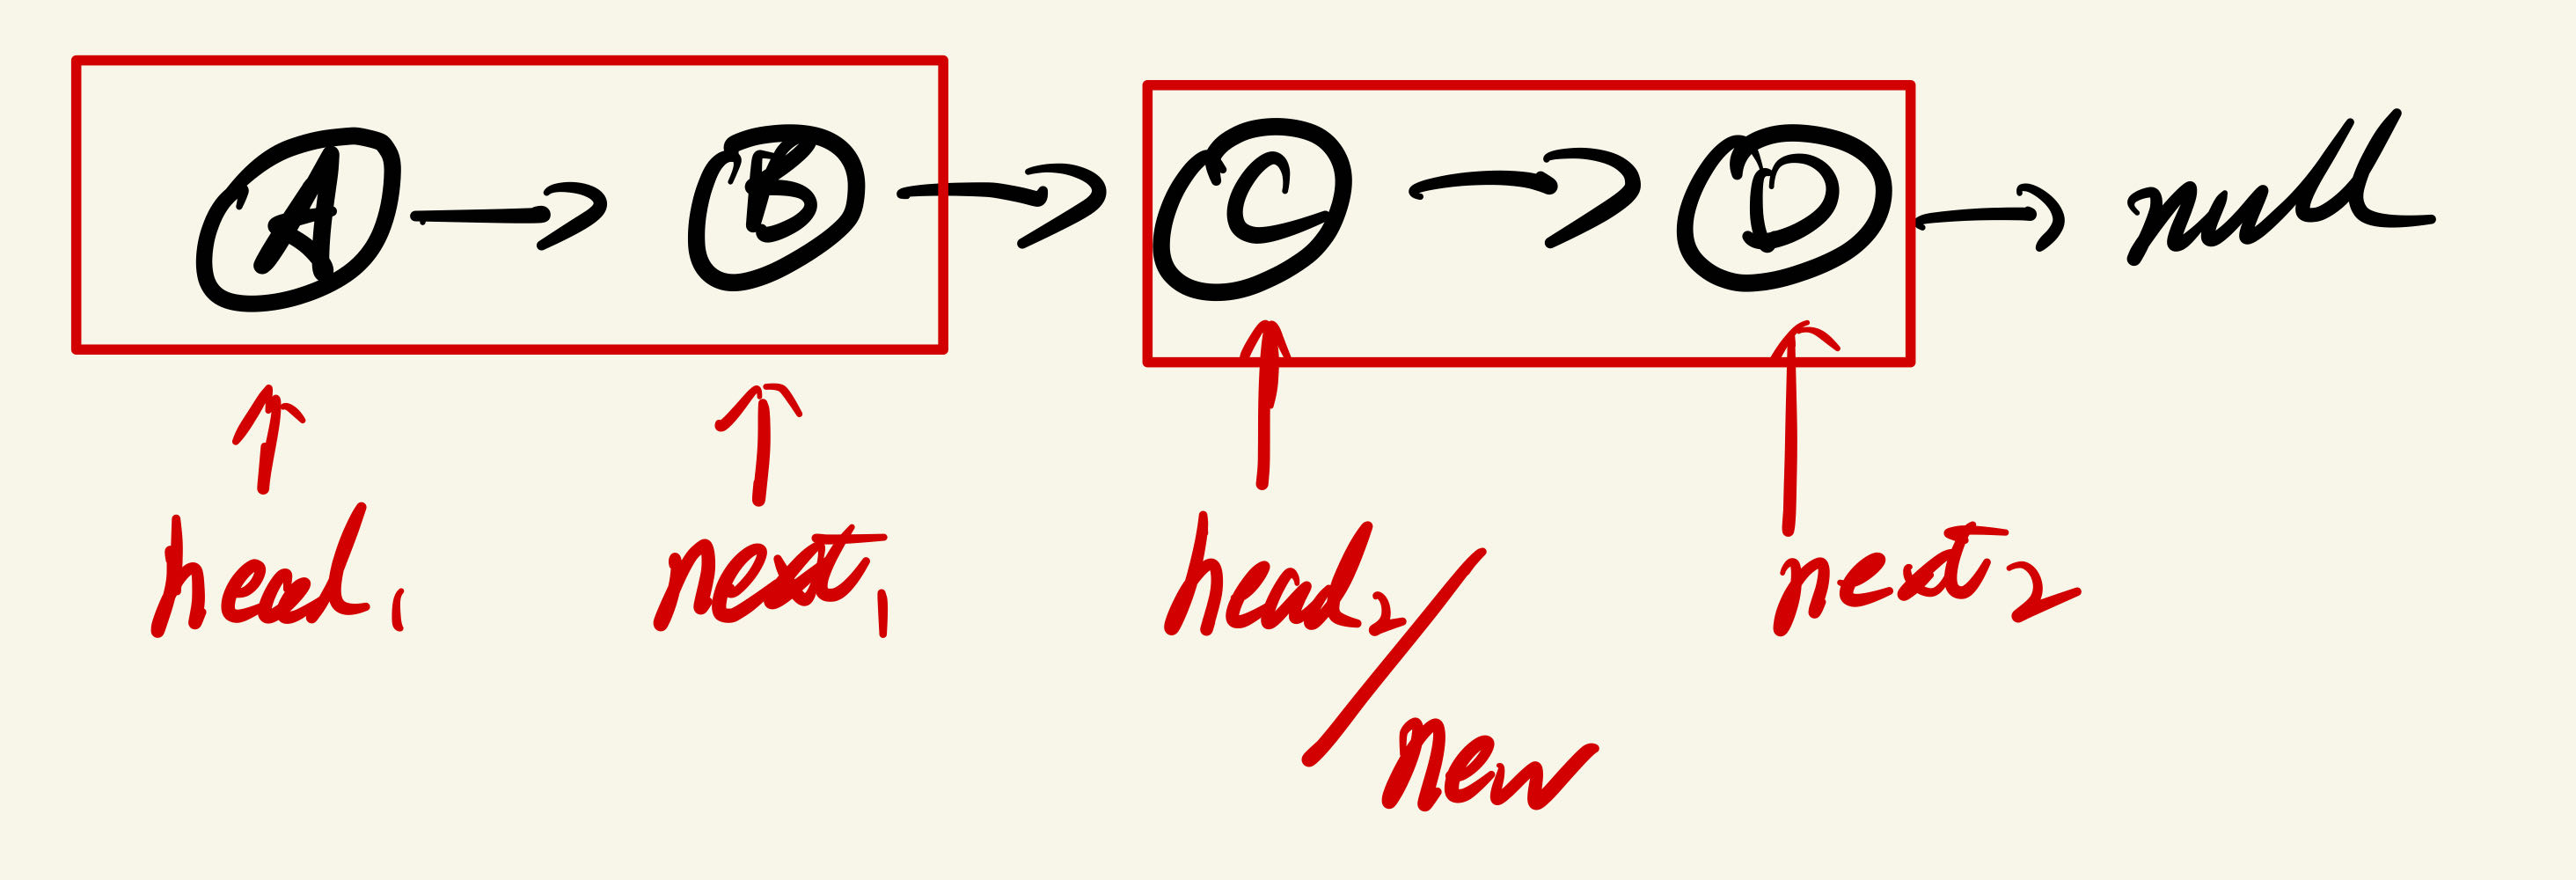 A → B → C → D → null
head₁ next₁ head₂/ next₂
new